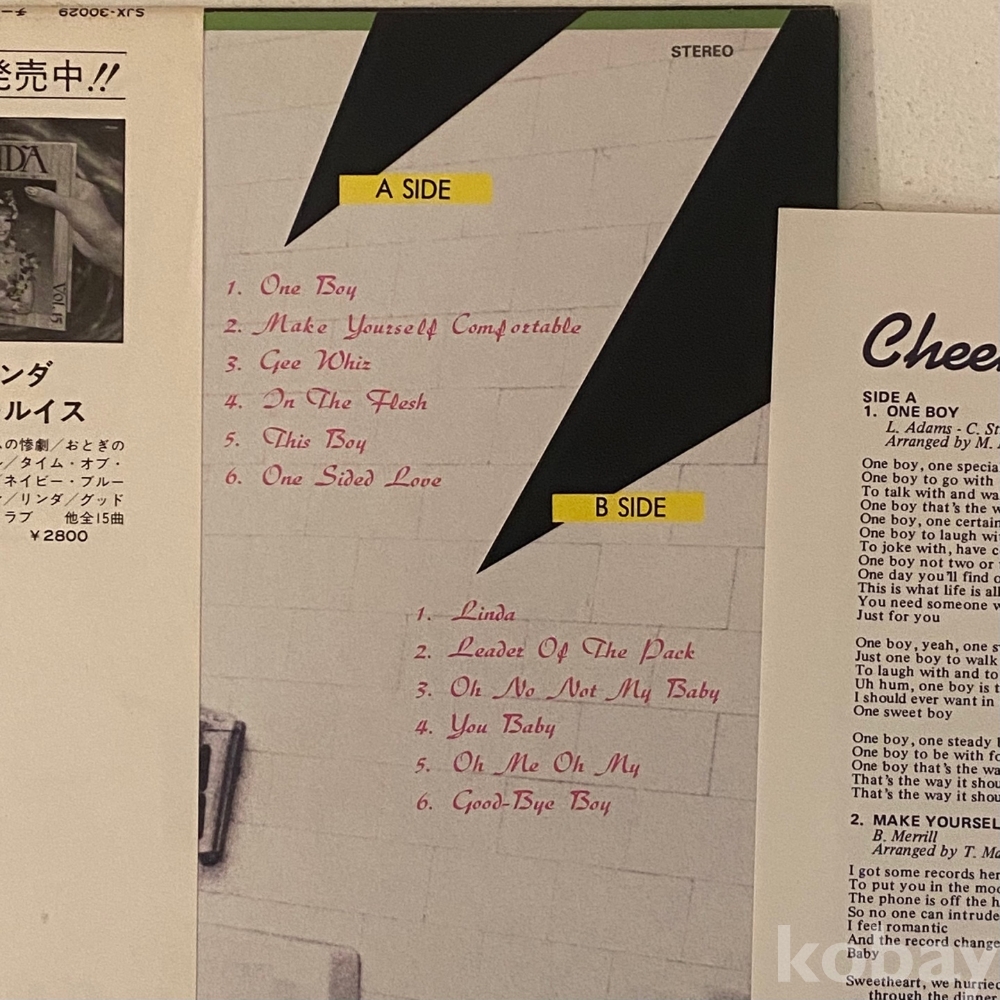 SJX-30029
発売中!!
Vol.15
ンダ
ルイス
の惨劇／おとぎの
／タイム・オブ・
ネイビー・ブルー
／リンダ／グッド
ラブ 他全15曲
¥2800
STEREO
A SIDE
1. One Boy
2. Make Yourself Comfortable
3. Gee Whiz
4. In The Flesh
5. This Boy
6. One Sided Love
B SIDE
1. Linda
2. Leader Of The Pack
3. Oh No Not My Baby
4. You Baby
5. Oh Me Oh My
6. Good-Bye Boy
SIDE A
1. ONE BOY
L. Adams - C. St
Arranged by M.
One boy, one specia
One boy to go with
To talk with and wa
One boy that's the w
One boy, one certain
One boy to laugh wi
To joke with, have c
One boy not two or
One day you'll find o
This is what life is all
You need someone w
Just for you
One boy, yeah, one s
Just one boy to walk
To laugh with and to
Uh hum, one boy is t
I should ever want in
One sweet boy
One boy, one steady
One boy to be with fo
One boy that's the wa
That's the way it shou
That's the way it shou
2. MAKE YOURSEL
B. Merrill
Arranged by T. Ma
I got some records her
To put you in the moo
The phone is off the h
So no one can intrude
I feel romantic
And the record change
Baby
Sweetheart, we hurried
through the dinne
kobay